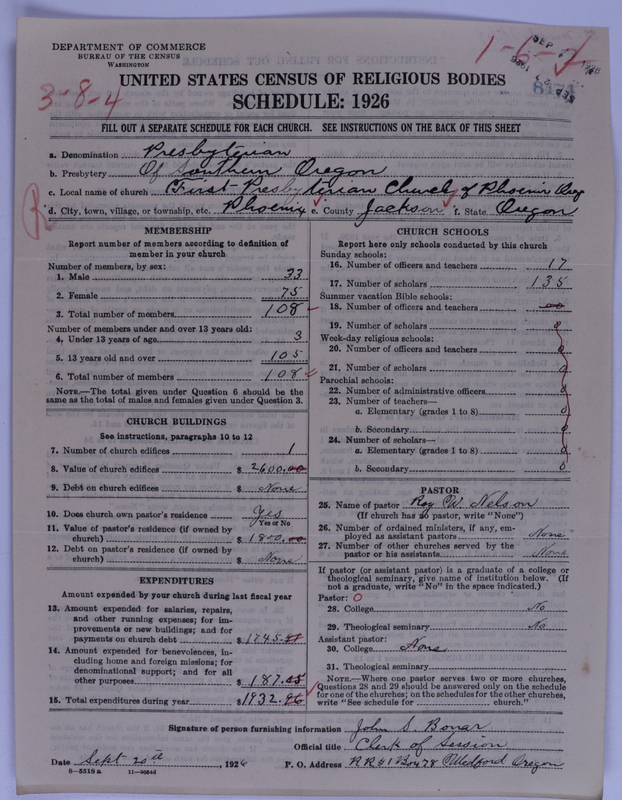 DEPARTMENT OF COMMERCE
BUREAU OF THE CENSUS
WASHINGTON
1-6-7
3-8-4
UNITED STATES CENSUS OF RELIGIOUS BODIES
SCHEDULE: 1926
FILL OUT A SEPARATE SCHEDULE FOR EACH CHURCH. SEE INSTRUCTIONS ON THE BACK OF THIS SHEET
a. Denomination Presbyterian
b. Presbytery Of Southern Oregon
c. Local name of church First Presbyterian Church of Phoenix Oreg
d. City, town, village, or township, etc. Phoenix e. County Jackson f. State Oregon
R
MEMBERSHIP
Report number of members according to definition of
member in your church
Number of members, by sex:
1. Male 33
2. Female 75
3. Total number of members 108
Number of members under and over 13 years old:
4. Under 13 years of age 3
5. 13 years old and over 105
6. Total number of members 108
NOTE.—The total given under Question 6 should be the
same as the total of males and females given under Question 3.
CHURCH BUILDINGS
See instructions, paragraphs 10 to 12
7. Number of church edifices 1
8. Value of church edifices $ 2600.00
9. Debt on church edifices $ None
10. Does church own pastor's residence Yes
Yes or No
11. Value of pastor's residence (if owned by
church) $ 1800.00
12. Debt on pastor's residence (if owned by
church) $ None
EXPENDITURES
Amount expended by your church during last fiscal year
13. Amount expended for salaries, repairs,
and other running expenses; for im-
provements or new buildings; and for
payments on church debt $ 1745.
14. Amount expended for benevolences, in-
cluding home and foreign missions; for
denominational support; and for all
other purposes $ 187.
15. Total expenditures during year $ 1932.
CHURCH SCHOOLS
Report here only schools conducted by this church
Sunday schools:
16. Number of officers and teachers 17
17. Number of scholars 135
Summer vacation Bible schools:
18. Number of officers and teachers 00
19. Number of scholars 0
Week-day religious schools:
20. Number of officers and teachers 0
21. Number of scholars 0
Parochial schools:
22. Number of administrative officers 0
23. Number of teachers—
a. Elementary (grades 1 to 8) 0
b. Secondary 0
24. Number of scholars—
a. Elementary (grades 1 to 8) 0
b. Secondary 0
PASTOR
25. Name of pastor Roy W. Nelson
(If church has no pastor, write "None")
26. Number of ordained ministers, if any, em-
ployed as assistant pastors None
27. Number of other churches served by the
pastor or his assistants None
If pastor (or assistant pastor) is a graduate of a college or
theological seminary, give name of institution below. (If
not a graduate, write "No" in the space indicated.)
Pastor: O
28. College No
29. Theological seminary No
Assistant pastor:
30. College None
31. Theological seminary
NOTE.—Where one pastor serves two or more churches,
Questions 28 and 29 should be answered only on the schedule
for one of the churches; on the schedules for the other churches,
write "See schedule for church."
Signature of person furnishing information John S. Bonar
Official title Clerk of Session
Date Sept 20th, 1926 P. O. Address R R #1 Box 78 Medford Oregon
8—5519 a